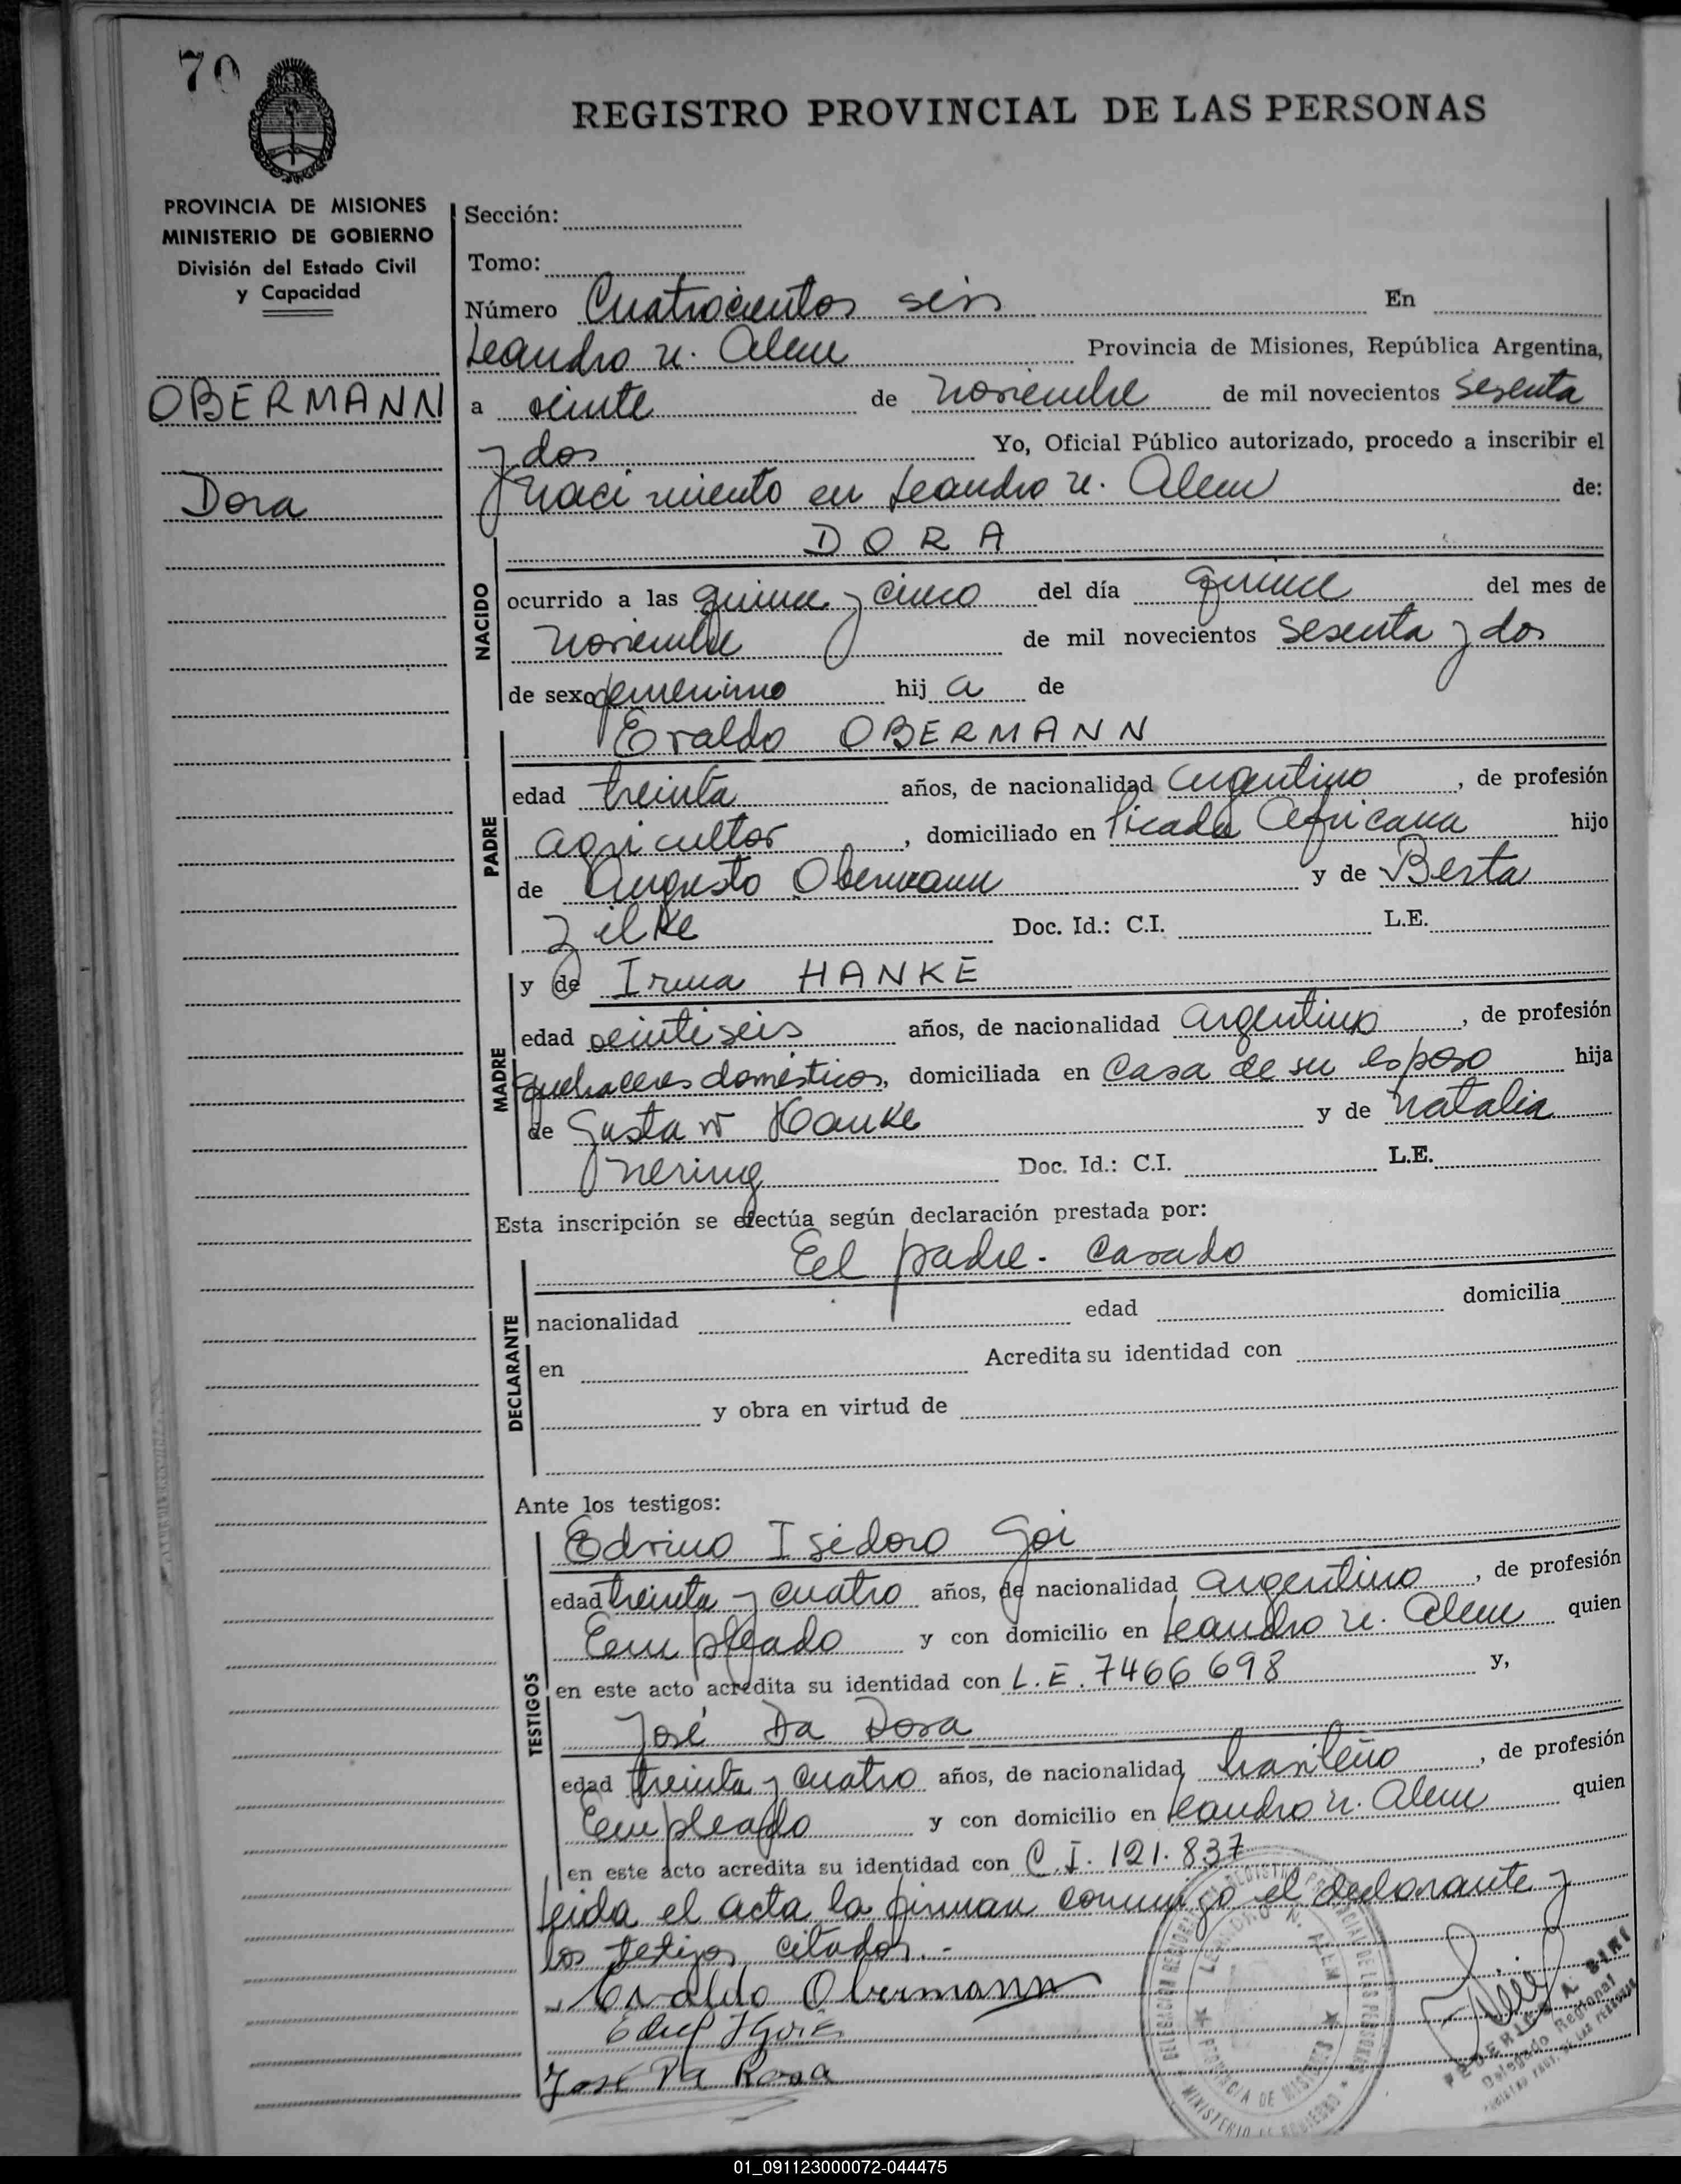 70
REGISTRO PROVINCIAL DE LAS PERSONAS
PROVINCIA DE MISIONES
MINISTERIO DE GOBIERNO
División del Estado Civil
y Capacidad
OBERMANN
Dora
Sección:
Tomo:
Número Cuatrocientos seis En
Leandro N. Alem Provincia de Misiones, República Argentina,
a veinte de noviembre de mil novecientos sesenta
y dos Yo, Oficial Público autorizado, procedo a inscribir el
nacimiento en Leandro N. Alem de:
DORA
NACIDO
ocurrido a las quince y cinco del día quince del mes de
noviembre de mil novecientos sesenta y dos
de sexo femenino hij a de
Evaldo OBERMANN
PADRE
edad treinta años, de nacionalidad argentino, de profesión
agricultor, domiciliado en Picada Africana hijo
de Augusto Obermann y de Berta
Zilke Doc. Id.: C.I. L.E.
y de Irma HANKE
MADRE
edad veintiseis años, de nacionalidad argentina, de profesión
quehaceres domésticos, domiciliada en Casa de su esposo hija
de Gustav Hanke y de Natalia
Nering Doc. Id.: C.I. L.E.
Esta inscripción se efectúa según declaración prestada por:
El padre - casado
DECLARANTE
nacionalidad edad domicilia
en Acredita su identidad con
y obra en virtud de
Ante los testigos:
TESTIGOS
Edvino Isidoro Goi
edad treinta y cuatro años, de nacionalidad argentino, de profesión
Empleado y con domicilio en Leandro N. Alem quien
en este acto acredita su identidad con L.E. 7466698 y,
José Da Rosa
edad treinta y cuatro años, de nacionalidad brasileño, de profesión
Empleado y con domicilio en Leandro N. Alem quien
en este acto acredita su identidad con C.I. 121.837
Leida el acta la firman conmigo el declarante y
los testigos citados.-
Evaldo Obermann
José Da Rosa
LEANDRO N. ALEM
PROVINCIA DE MISIONES
MINISTERIO DE GOBIERNO
Delegado Regional
01_091123000072-044475